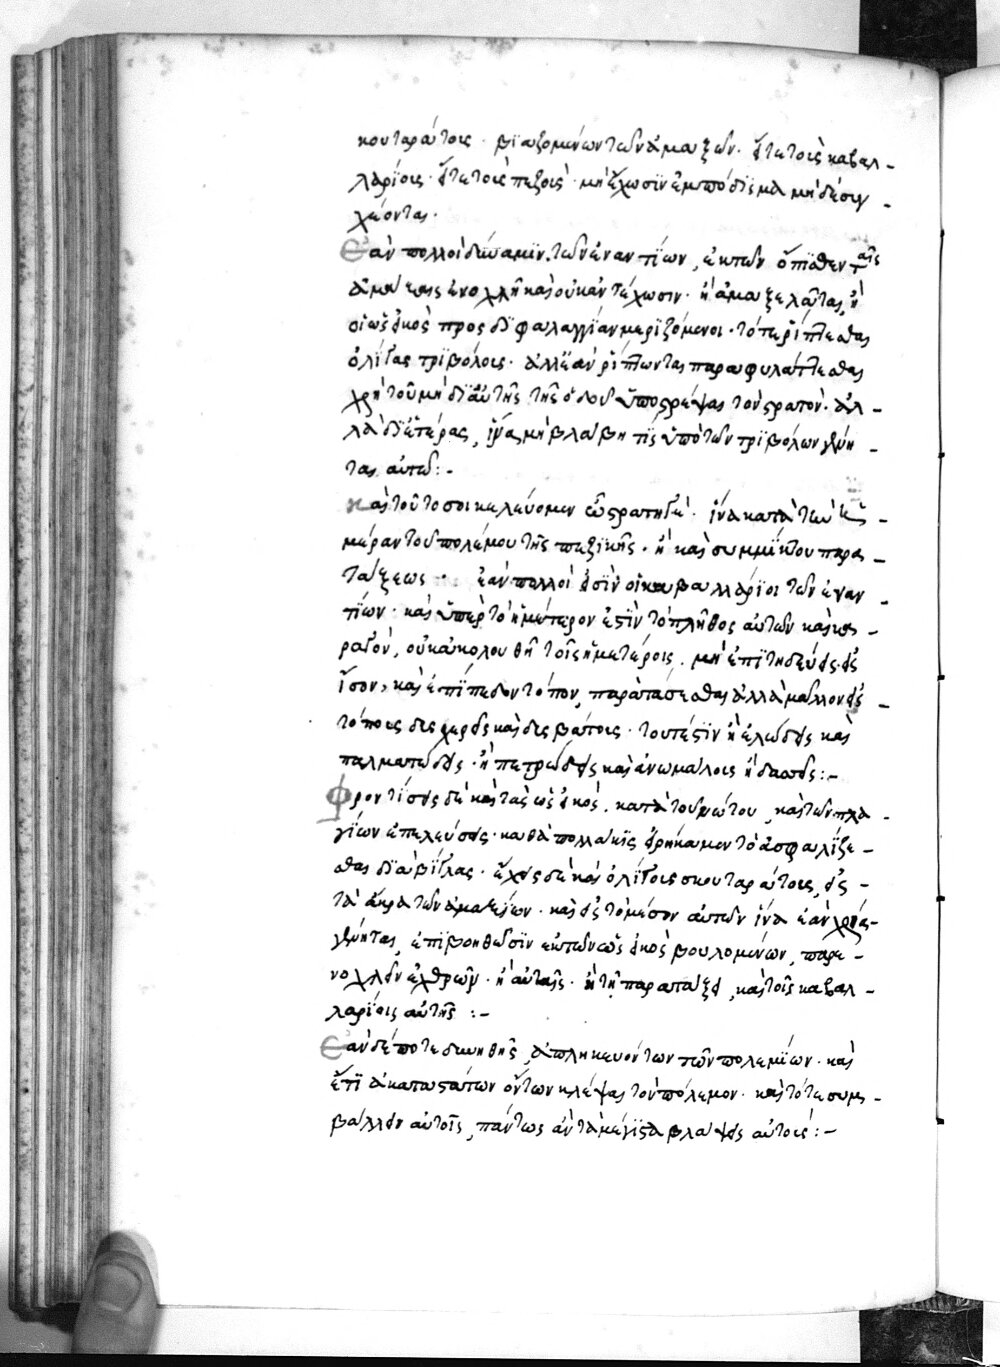 κουταράτοις· βϊαζομένων τῶν ἁμαξῶν· ἢ τε τοῖς καβαλ-
λαρίοις· ἢ τε τοῖς πεζοῖς· μὴ ἔχωσϊν ἐμπόδϊσμα μηδὲ συγ
χέονται·
Ἐὰν πολλοὶ δύναμϊν τῶν ἐναντΐων, ἐκ τῶν ὄπϊσθεν ταῖς
ἁμάξαις ἐνοχλῆ καὶ οὐκ ἀντέχωσιν· ἢ ἁμαξελάται, ἢ
οἱ ὡς εἰκὸς πρὸς δϊφαλαγγίαν μερϊζόμενοι· τότε ῥίπτεσθαι
ὀλίγας τρϊβόλους· ἀλλ' ἐὰν ῥίπτωνται παραφυλάττεσθαι
χρὴ τοῦ μὴ δϊ' αὐτῆς τῆς ὁδοῦ ὑποστρέψαι τὸν στρατόν· ἀλ-
λὰ δϊ' ἑτέρας, ἵνα μὴ βλάβη τίς ὑπὸ τῶν τρϊβόλων γένη
ται αὐτῶ:-
καὶ τοῦτο σοι κελεύομεν ὦ στρατηγέ· ἵνα κατὰ τὴν ἡ-
μέραν τοῦ πολέμου τῆς πεζικῆς· ἢ καὶ συμμίκτου παρα-
τάξεως· ἐὰν πολλοί εἰσϊν οἱ καβαλλάρϊοι τῶν ἐναν
τίων· καὶ ὑπὲρ τὸ ἡμέτερον ἐστϊν τὸ πλῆθος αὐτῶν καὶ
οὐκ ἀκολουθῆ τοῖς ἡμετέροις, μὴ ἐπϊτηδεύσῃς εἰς
ἴσον, καὶ ἐπΐπεδον τόπον, παρατάσσεσθαι ἀλλὰ μᾶλλον εἰς
τόπους δυσχερεῖς καὶ δυσβάτους· τουτέστϊν ἢ ἑλώδεις καὶ
παλματώδεις· ἢ πετρώδεις καὶ ἀνωμάλους ἢ δασεῖς:-
Φροντίσῃς δὲ καὶ τὰς ὡς εἰκὸς, κατὰ τοῦ νώτου, καὶ τῶν πλα-
γΐων ἐπελεύσεις· καθὰ πολλάκϊς εἰρήκαμεν τὸ ἀσφαλίζε-
σθαι δϊὰ βΐγλας· ἔχεις δὲ καὶ ὀλίγους σκουταράτους, εἰς
τὰ ἄκρα τῶν ἁμαξίων· καὶ εἰς τὸ μέσον αὐτῶν ἵνα ἐὰν χρεία-
γένηται, ἐπϊβοηθῶσϊν ἐκ τῶν ὡς εἰκὸς βουλομένων, παρε-
νοχλεῖν ἐχθρῶν· ἢ αὐταῖς· ἢ τῆ παρατάξει, καὶ τοῖς καβαλ-
λαρΐοις αὐτῆς:-
Ἐὰν δέποτε δυνηθῆς, ἀπληκευόντων τῶν πολεμΐων· καὶ
ἔτϊ ἀκαταστάτων ὄντων κλέψαι τὸν πόλεμον· καὶ τότε συμ-
βάλλειν αὐτοῖς, πάντως ἂν τὰ μέγϊστα βλάψεις αὐτούς:-